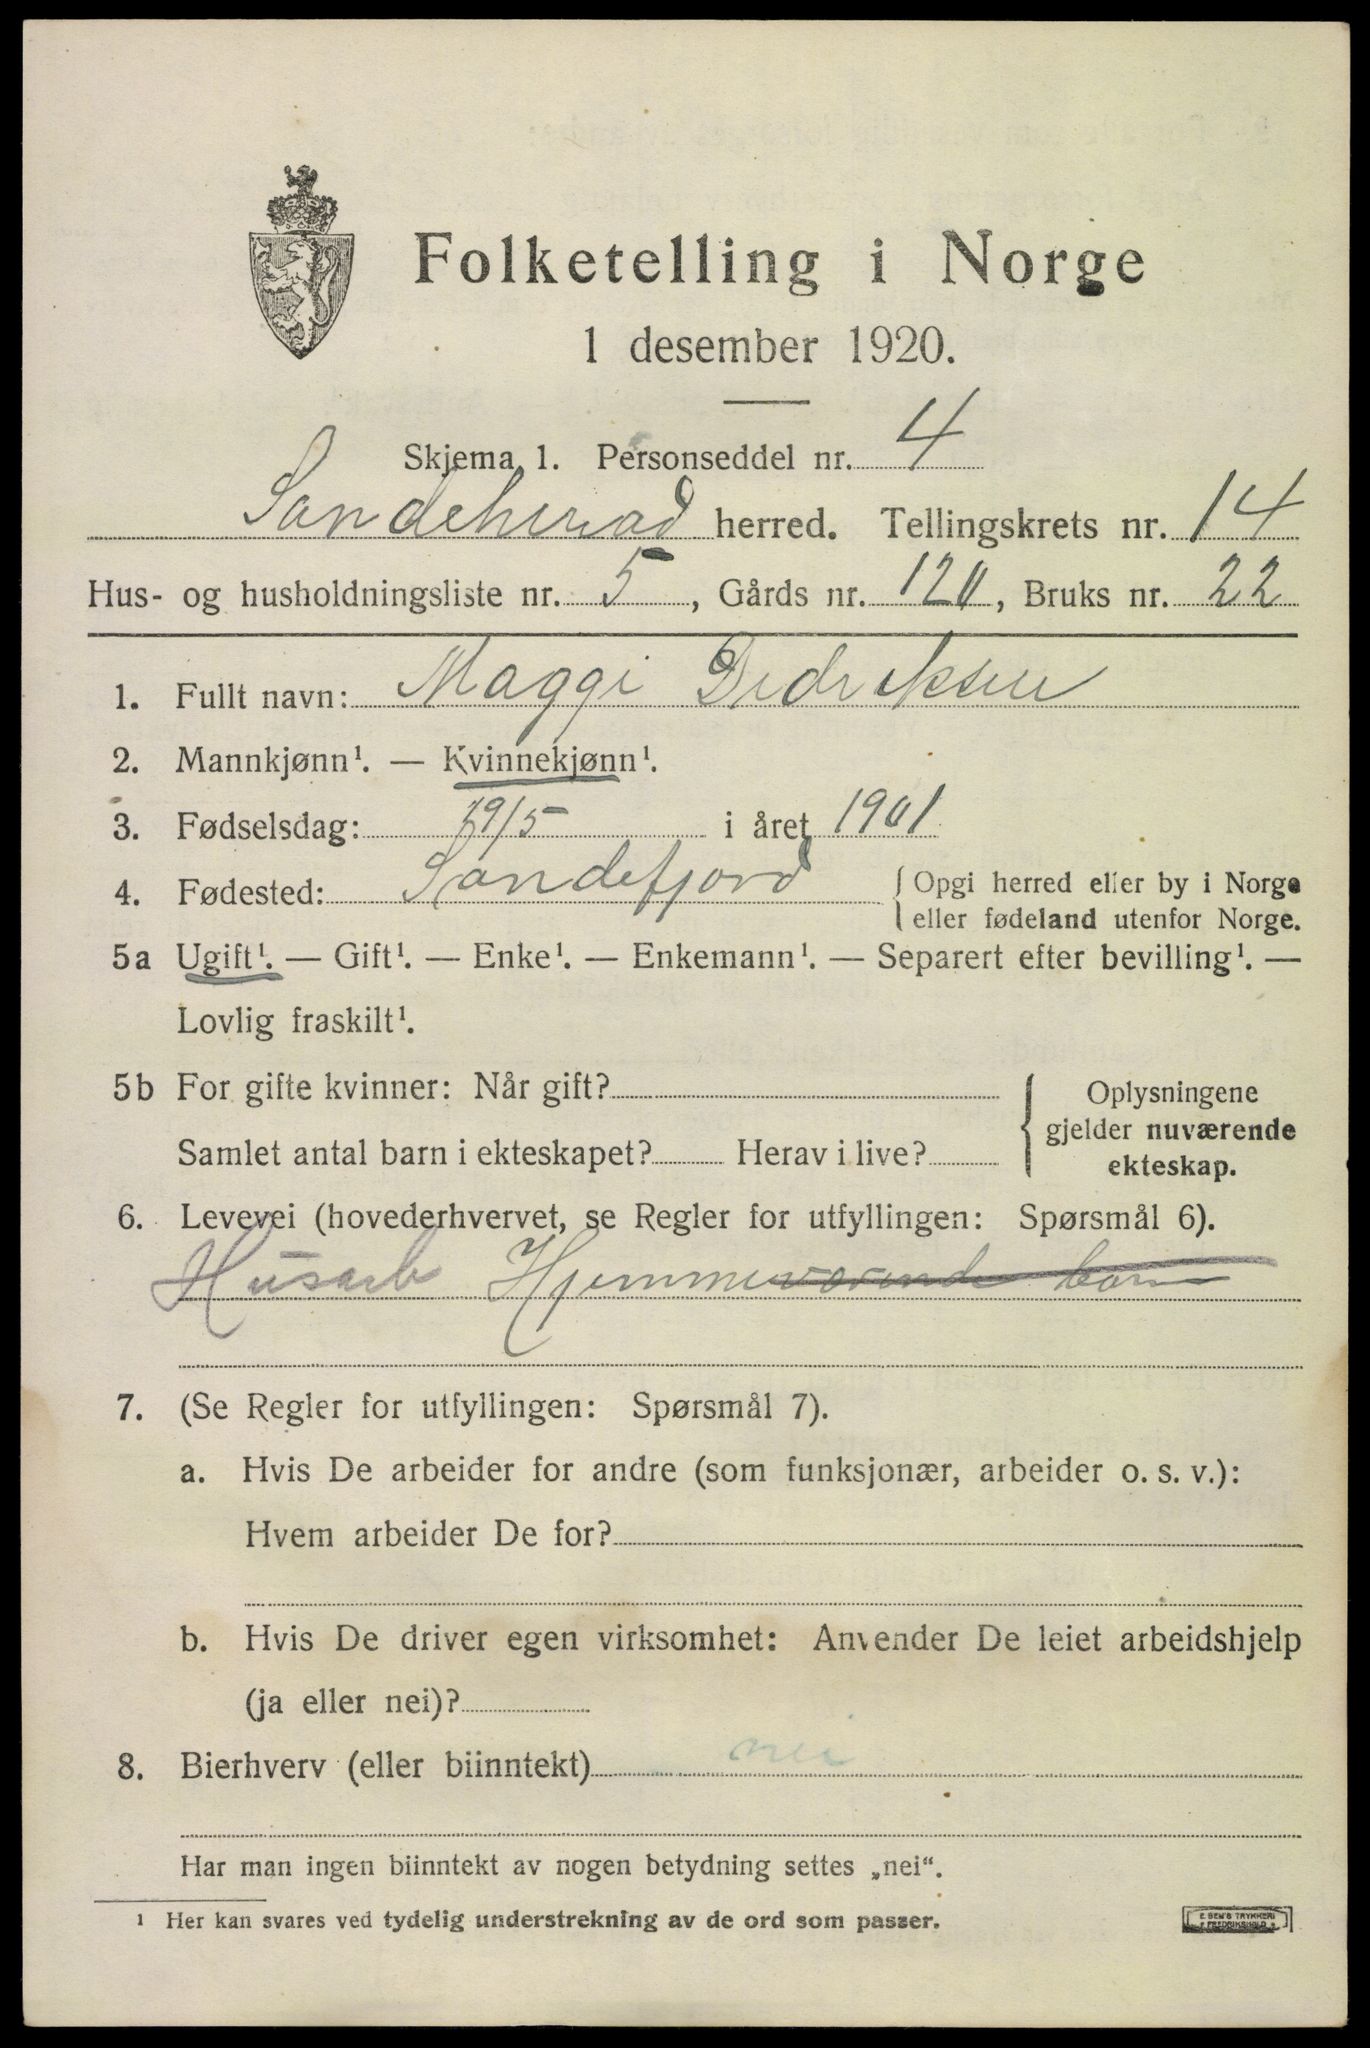 Folketelling i Norge
1 desember 1920.
Skjema 1. Personseddel nr. 4
Sandeherad herred. Tellingskrets nr. 14
Hus- og husholdningsliste nr. 5, Gårds nr. 120, Bruks nr. 22
1. Fullt navn: Maggi Didriksen
2. Mannkjønn¹. — Kvinnekjønn¹.
3. Fødselsdag: 29/5 i året 1901
4. Fødested: Sandefjord { Opgi herred eller by i Norge
eller fødeland utenfor Norge.
5a Ugift¹. — Gift¹. — Enke¹. — Enkemann¹. — Separert efter bevilling¹. —
Lovlig fraskilt¹.
5b For gifte kvinner: Når gift?
Samlet antal barn i ekteskapet? Herav i live?
Oplysningene
gjelder nuværende
ekteskap.
6. Levevei (hovederhvervet, se Regler for utfyllingen: Spørsmål 6).
Husarb Hjemmeværende barn
7. (Se Regler for utfyllingen: Spørsmål 7).
a. Hvis De arbeider for andre (som funksjonær, arbeider o. s. v.):
Hvem arbeider De for?
b. Hvis De driver egen virksomhet: Anvender De leiet arbeidshjelp
(ja eller nei)?
8. Bierhverv (eller biinntekt) nei
Har man ingen biinntekt av nogen betydning settes „nei“.
¹ Her kan svares ved tydelig understrekning av de ord som passer.
E. SEM'S TRYKKERI
FREDRIKSHALD